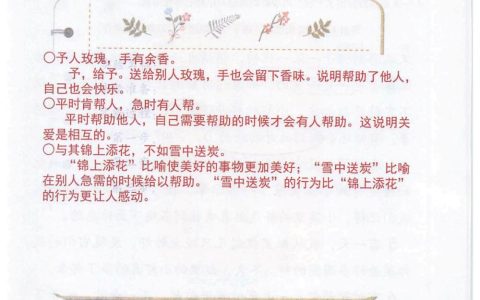 〇予人玫瑰，手有余香。
予，给予。送给别人玫瑰，手也会留下香味。说明帮助了他人，
自己也会快乐。
〇平时肯帮人，急时有人帮。
平时帮助他人，自己需要帮助的时候才会有人帮助。这说明关
爱是相互的。
〇与其锦上添花，不如雪中送炭。
“锦上添花”比喻使美好的事物更加美好；“雪中送炭”比喻
在别人急需的时候给以帮助。“雪中送炭”的行为比“锦上添花”
的行为更让人感动。